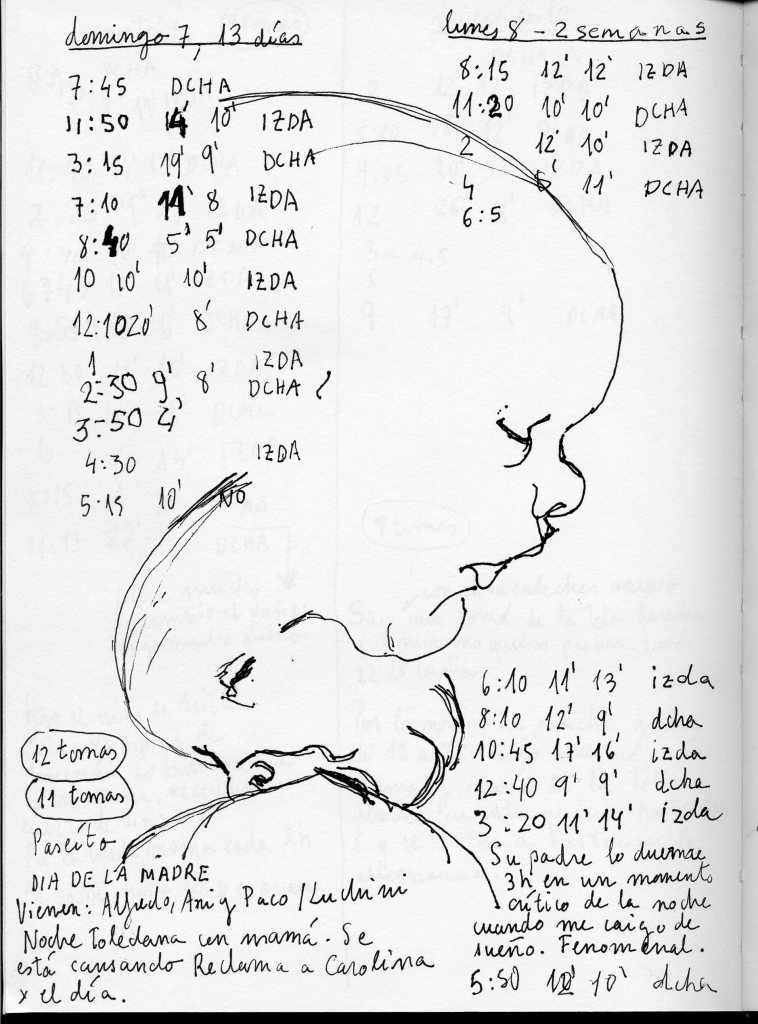 domingo 7, 13 días
7:45 DCHA
11:50 14' 10' IZDA
3:15 19' 9' DCHA
7:10 11' 8 IZDA
8:40 5' 5' DCHA
10 10' 10' IZDA
12:10 20' 8' DCHA
1 IZDA
2:30 9', 8' DCHA
3:50 4'
4:30 IZDA
5:15 10' NO
12 tomas
11 tomas
Paseíto
DIA DE LA MADRE
Vienen: Alfredo, Ani y Paco / Luchini
Noche Toledana con mamá. Se
está causando Reclama a Carolina
x el día.
lunes 8 - 2 semanas
8:15 12' 12' IZDA
11:20 10' 10' DCHA
2 12' 10' IZDA
4 5' 11' DCHA
6:5
6:10 11' 13' izda
8:10 12' 9' dcha
10:45 17' 16' izda
12:40 9' 9' dcha
3:20 11' 14' izda
Su padre lo duerme
3h en un momento
crítico de la noche
cuando me caigo de
sueño. Fenomenal.
5:50 12' 10' dcha